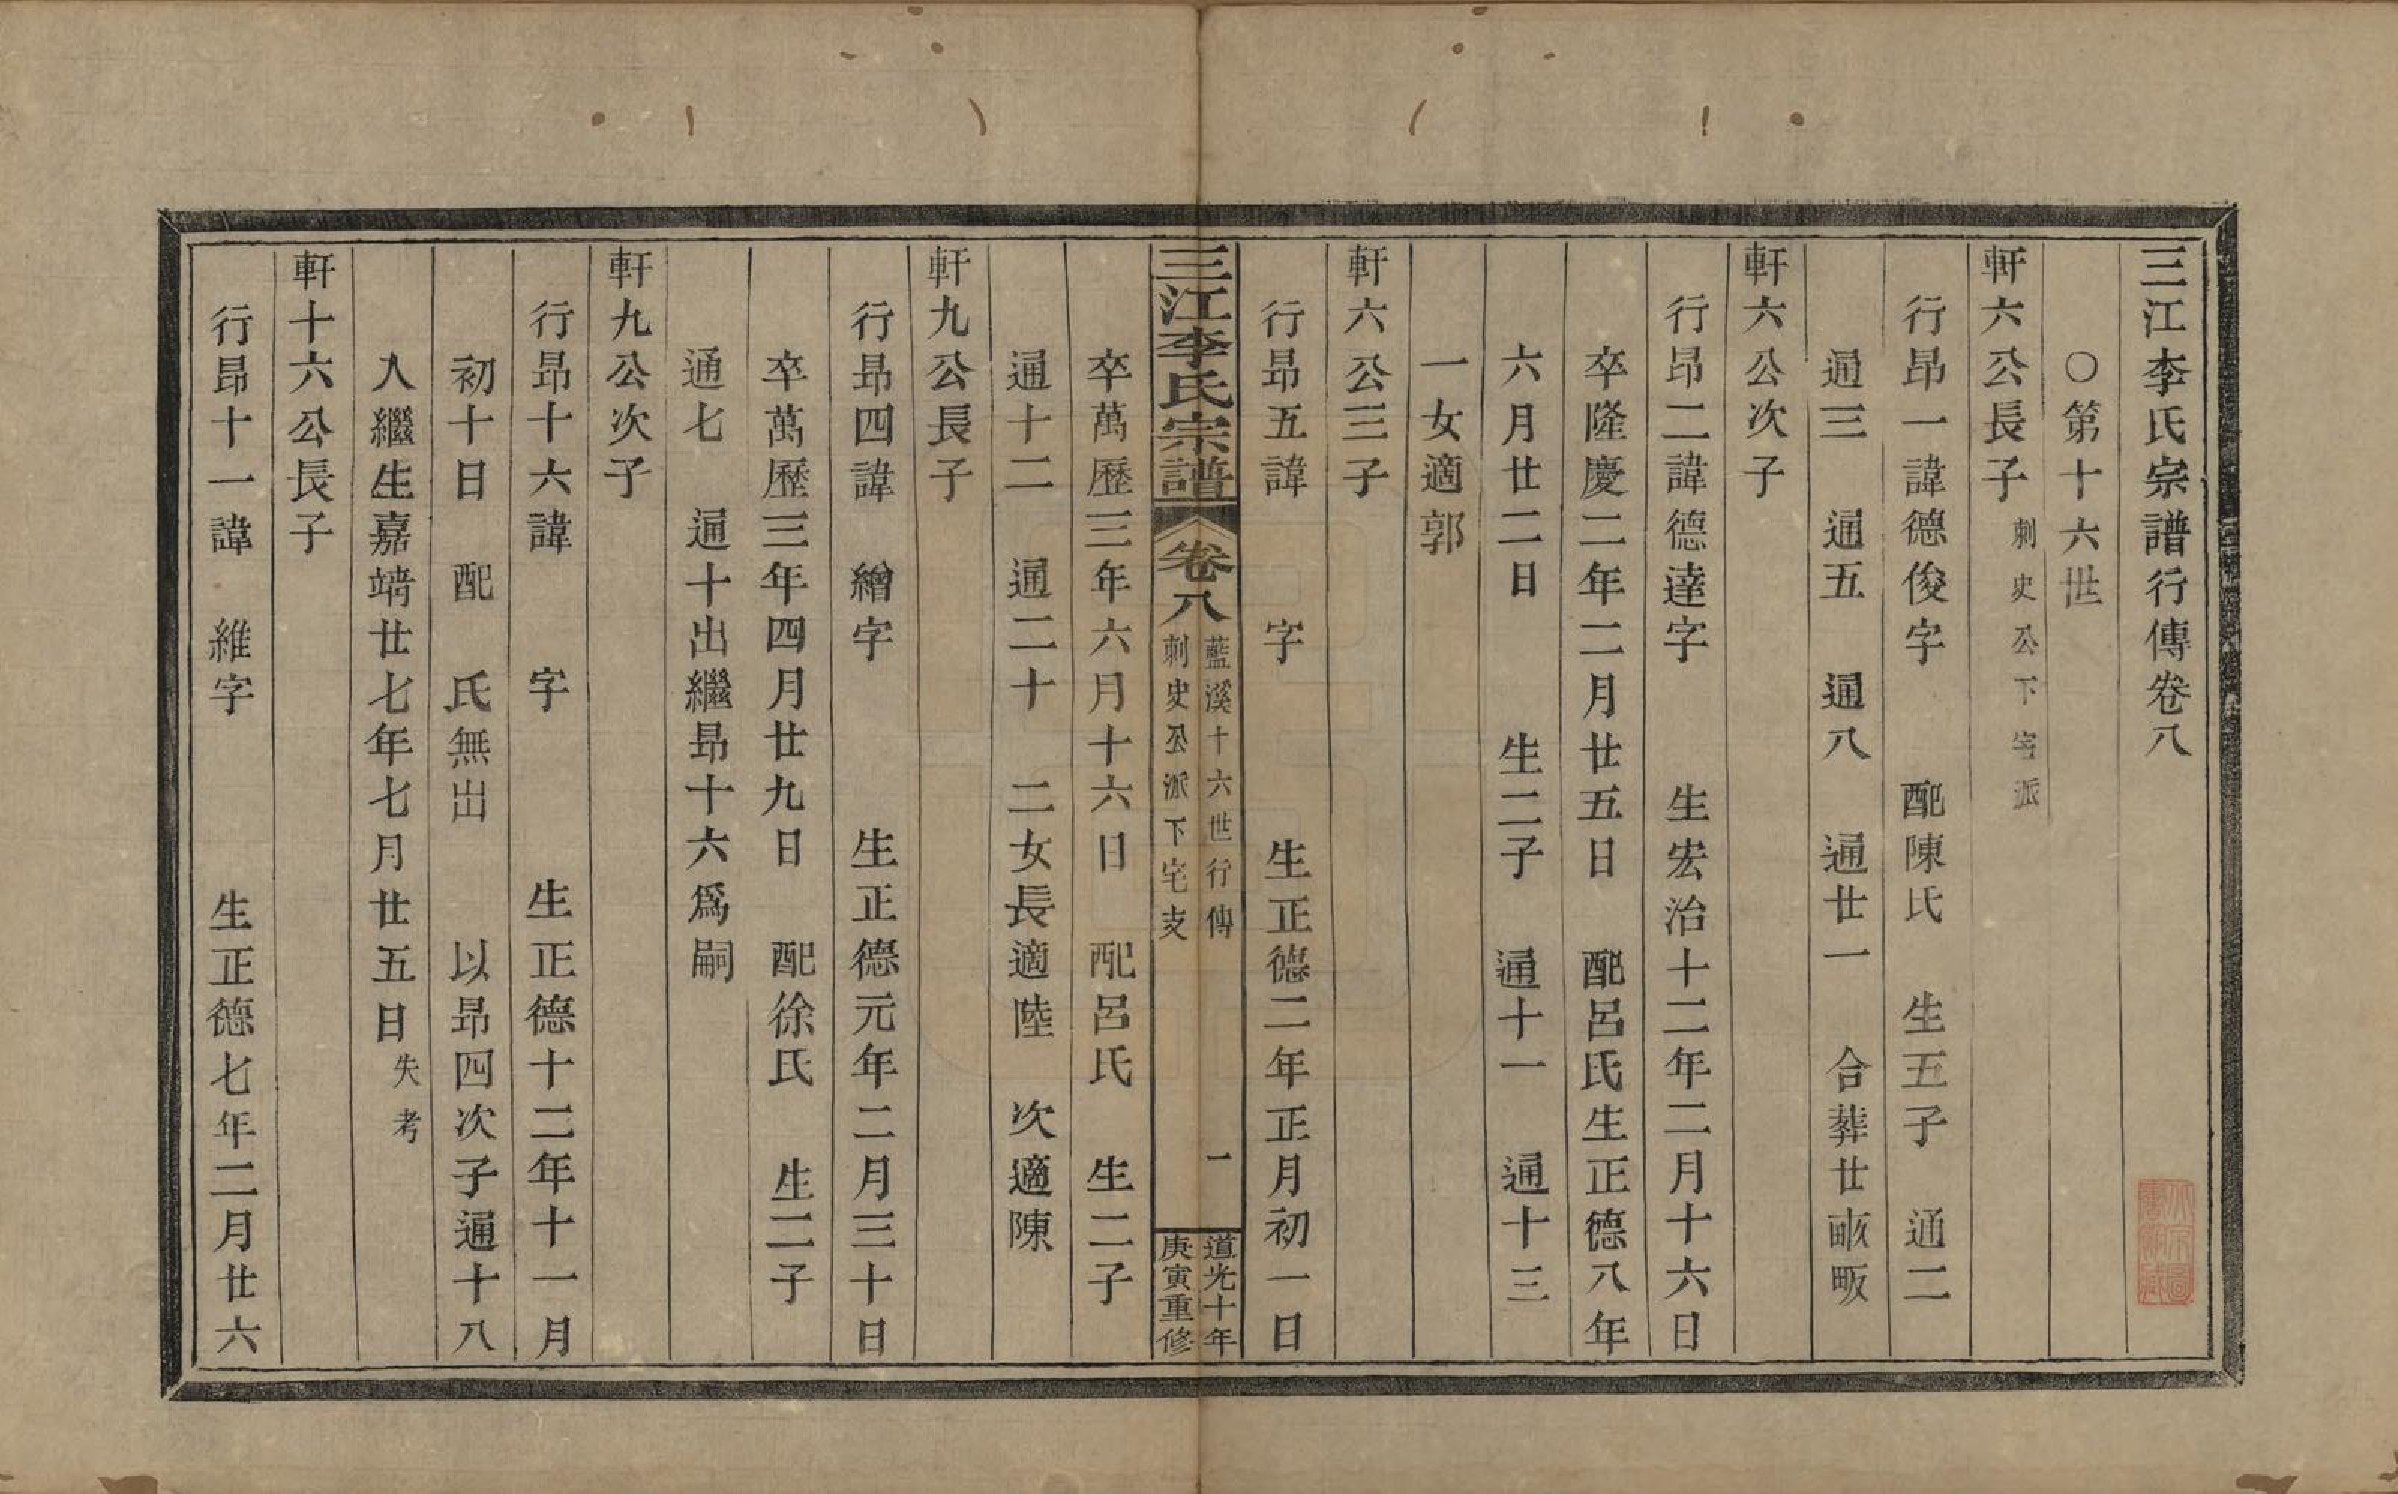 三江李氏宗譜行傳卷八
○第十六世
軒六公長子 刺史公下宅派
行昂一諱德俊字 配陳氏 生五子 通二
通三 通五 通八 通廿一 合葬廿畝畈
軒六公次子
行昂二諱德達字 生宏治十二年二月十六日
卒隆慶二年二月廿五日 配呂氏生正德八年
六月廿二日 生二子 通十一 通十三
一女適郭
軒六公三子
行昂五諱 字 生正德二年正月初一日
三江李氏宗譜 卷八 藍溪十六世行傳 刺史公派下宅支 一 道光十年 庚寅重修
卒萬歷三年六月十六日 配呂氏 生二子
通十二 通二十 二女長適陸 次適陳
軒九公長子
行昂四諱 繒字 生正德元年二月三十日
卒萬歷三年四月廿九日 配徐氏 生二子
通七 通十出繼昂十六爲嗣
軒九公次子
行昂十六諱 字 生正德十二年十一月
初十日 配 氏無出 以昂四次子通十八
入繼生嘉靖廿七年七月廿五日 失考
軒十六公長子
行昂十一諱 維字 生正德七年二月廿六